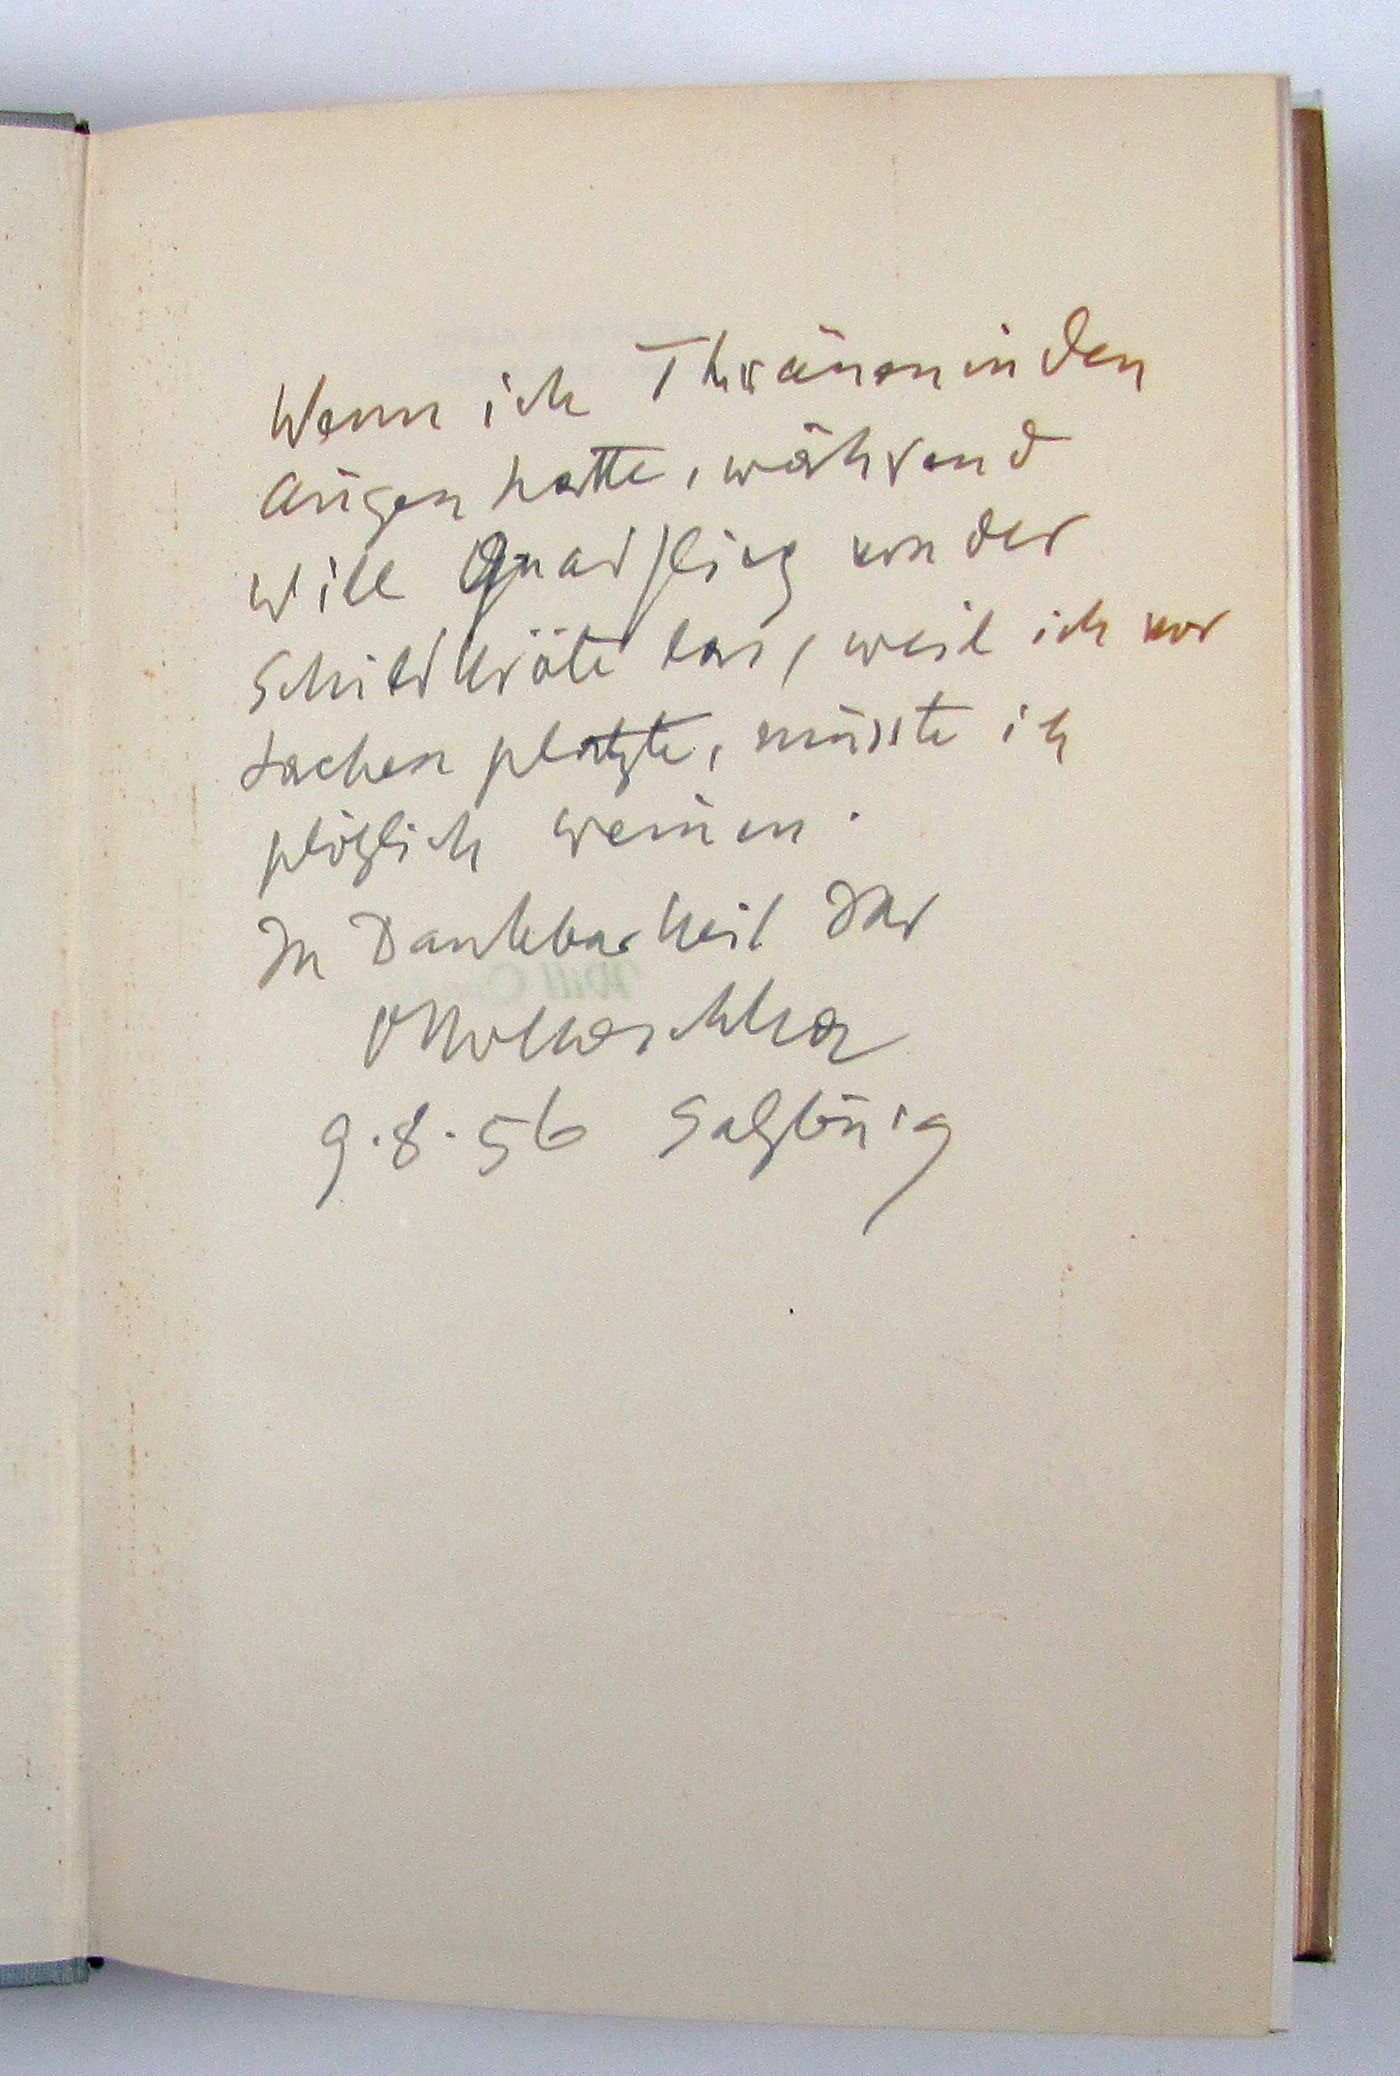 Wenn ich Thränen in den
Augen hatte, während
Will Quadflieg von der
Schildkröte las, weil ich vor
Lachen platzte, musste ich
plötzlich weinen.
In Dankbarkeit Ihr
OKokoschka
9.8.56 Salzburg